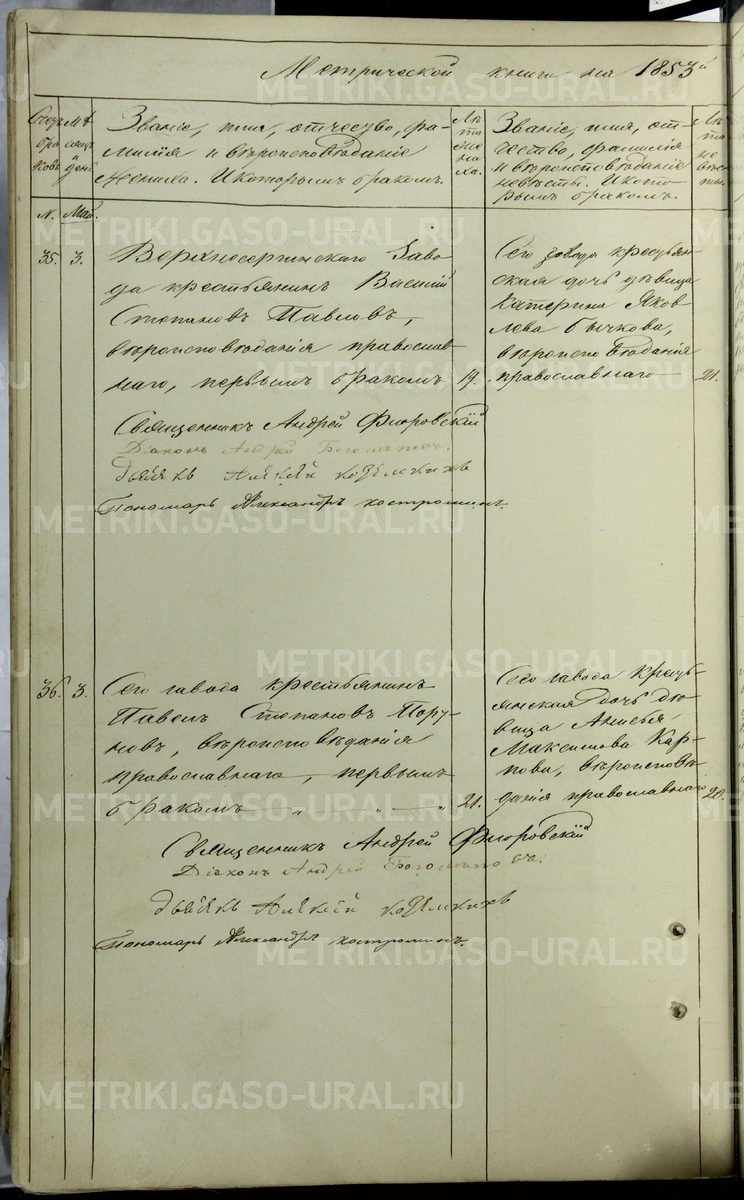 Метрической книги на 1853й
Счетъ бра ковъ
Мѣ сяцъ и день
Званіе, имя, отчество, фа-
милія и вѣроисповѣданіе
жениха. И которымъ бракомъ.
Лѣ та же ни ха.
Званіе, имя, от-
чество, фамилія
и вѣроисповѣданіе
невѣсты. И кото-
рымъ бракомъ.
Лѣ та не вѣс ты.
N. Май.
35. 3.
Верхнесергинскаго Заво-
да крестьянинъ Василій
Степановъ Павловъ,
вѣроисповѣданія православ-
наго, первымъ бракомъ 19.
Сего завода крестьян-
ская дочь дѣвица
Катерина Яков
лева Бычкова,
вѣроисповѣданія
православнаго 21.
Священникъ Андрей Флоровскій
Діаконъ Андрей
Дьячекъ Алексѣй
Пономарь Александръ Костроминъ.
36. 3.
Сего завода крестьянинъ
Павелъ Степановъ Пору-
новъ, вѣроисповѣданія
православнаго, первымъ
бракомъ „ „ — „ 21.
Сего завода кресть-
янская дочь дѣ-
вица Анисья
Максимова Кар-
пова, вѣроисповѣ-
данія православнаго 20.
Священникъ Андрей Флоровскій
Діаконъ Андрей
Дьячекъ Алексѣй
Пономарь Александръ Костроминъ.
METRIKI.GASO-URAL.RU